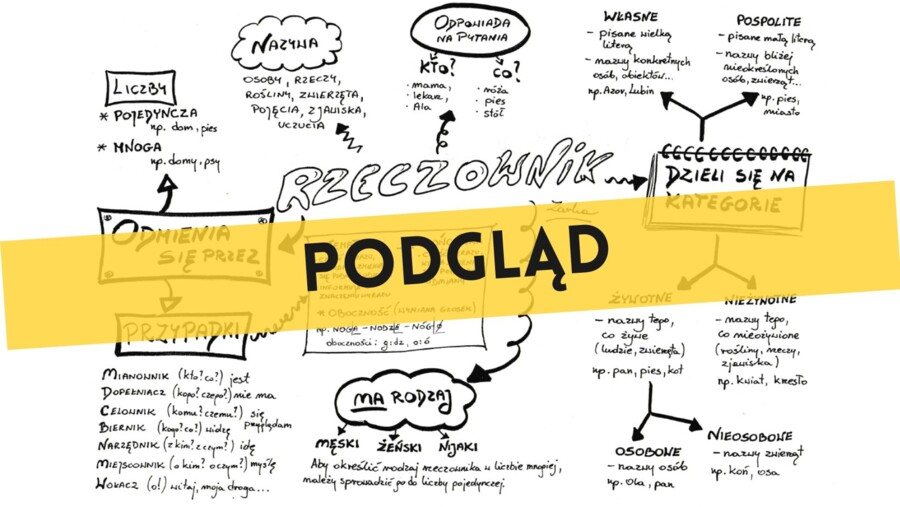 NAZYWA
OSOBY, RZECZY,
ROŚLINY, ZWIERZĘTA,
POJĘCIA, ZJAWISKA,
UCZUCIA
ODPOWIADA
NA PYTANIA
KTO?
· mama,
· lekarz,
· Ala
CO?
· róża
· pies
· stół
WŁASNE
- pisane wielką
literą
- nazwy konkretnych
osób, obiektów...
np. Azor, Lubin
POSPOLITE
- pisane małą literą
- nazwy bliżej
nieokreślonych
osób, zwierząt...
np. pies,
miasto
LICZBY
* POJEDYNCZA
np. dom, pies
* MNOGA
np. domy, psy
RZECZOWNIK
DZIELI SIĘ NA
KATEGORIE
ODMIENIA
SIĘ PRZEZ
PODGLĄD
* OBOCZNOŚĆ (WYMIANA GŁOSEK)
np. NOGA - NODZE - NÓGØ
oboczności: g:dz, o:ó
PRZYPADKI
MIANOWNIK (kto? co?) jest
DOPEŁNIACZ (kogo? czego?) nie ma
CELOWNIK (komu? czemu?) się
przyglądam
BIERNIK (kogo? co?) widzę
NARZĘDNIK (z kim? z czym?) idę
MIEJSCOWNIK (o kim? o czym?) myślę
WOŁACZ (o!) witaj, moja droga...
MA RODZAJ
MĘSKI
ŻEŃSKI
NIJAKI
Aby określić rodzaj rzeczownika w liczbie mnogiej,
należy sprowadzić go do liczby pojedynczej.
ŻYWOTNE
- nazwy tego,
co żywe
(ludzie, zwierzęta)
np. pan, pies, kot
NIEŻYWOTNE
- nazwy tego,
co nieożywione
(rośliny, rzeczy,
zjawiska)
np. kwiat, krzesło
OSOBOWE
- nazwy osób
np. Ola, pan
NIEOSOBOWE
- nazwy zwierząt
np. koń, osa